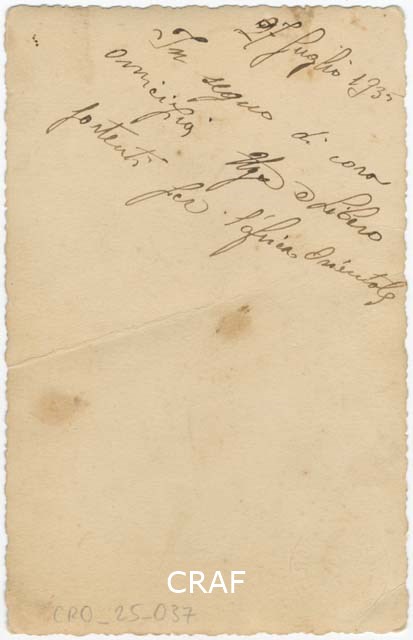 27 Luglio 1935
In segno di cara
amicizia
e Libero
partenti per l'Africa Orientale
CRAF
CRO_25_037